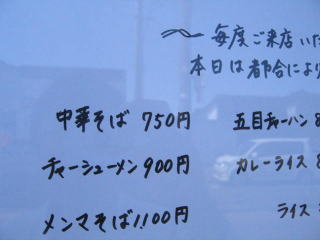 毎度ご来店いた
本日は都合により
中華そば 750円
五目チャーハン 8
チャーシューメン 900円
カレーライス 8
メンマそば 1.100円
ライス